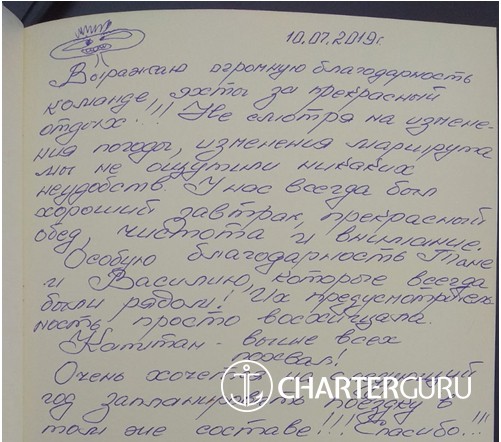 10.07.2019г.
Выражаю огромную благодарность
команде яхты за прекрасный
отдых!!! Не смотря на измене-
ния погоды, изменения маршрута
мы не ощутили никаких
неудобств. У нас всегда был
хороший завтрак, прекрасный
обед, чистота и внимание.
Особую благодарность Тане
и Василию, которые всегда
были рядом! Их предусмотритель-
ность просто восхищала.
Капитан - выше всех
похвал!
Очень хочется на следующий
год запланировать поездку в
том же составе!!! Спасибо!!!
CHARTERGURU